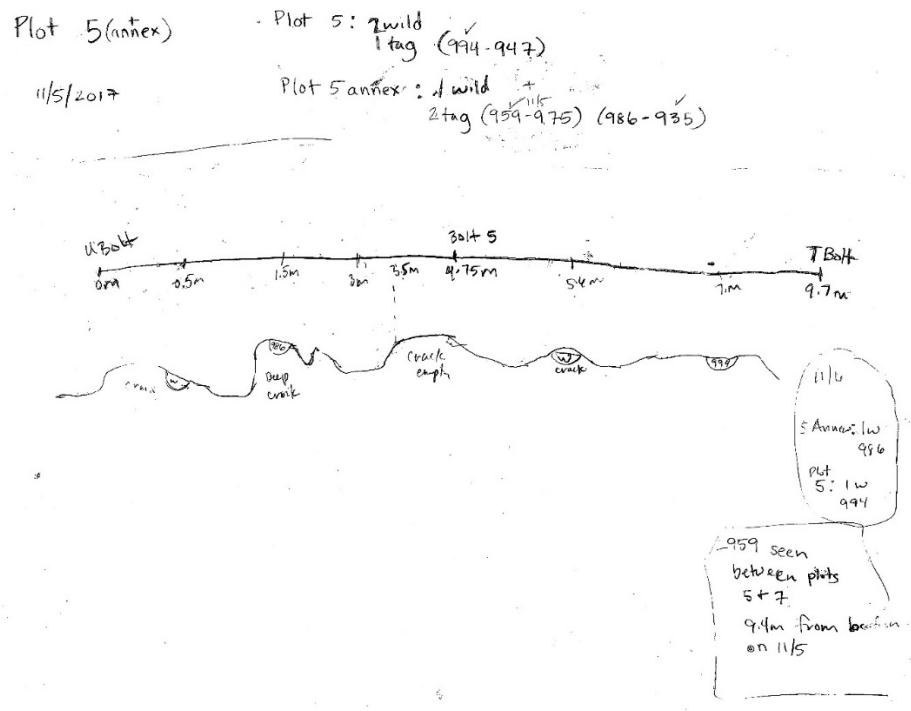 Plot 5 (annex)
11/5/2017
Plot 5: 2 wild
1 tag (994-947)
Plot 5 annex: 1 wild +
11/5
2 tag (959-975) (986-935)
U Bolt
Bolt 5
T Bolt
0m 0.5m 1.5m 3m 3.5m 4.75m 5.4m 7.m 9.7m
W
986
Deep
crack
crack
empty
W
crack
994
11/6
5 Annex: 1w
986
Plot
5: 1w
994
959 seen
between plots
5 + 7
9.4m from
on 11/5